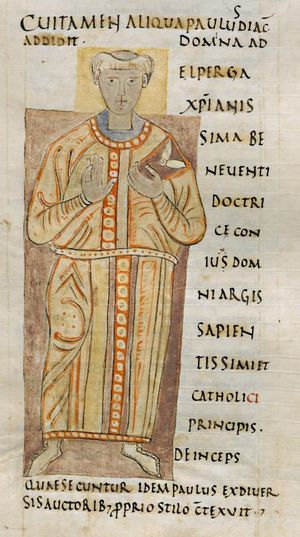 CUI TAMEN ALIQUA PAULUS DIAC
ADDIDIT. DOMINA AD
ELPERGA
XPIANIS
SIMA BE
NEVENTI
DOCTRI
CE CON
IUS DOM
NI ARGIS
SAPIEN
TISSIMI ET
CATHOLICI
PRINCIPIS.
DEINCEPS
QUAE SECUNTUR IDEM PAULUS EX DIVER
SIS AUCTORIB; PPRIO STILO CTEXUIT